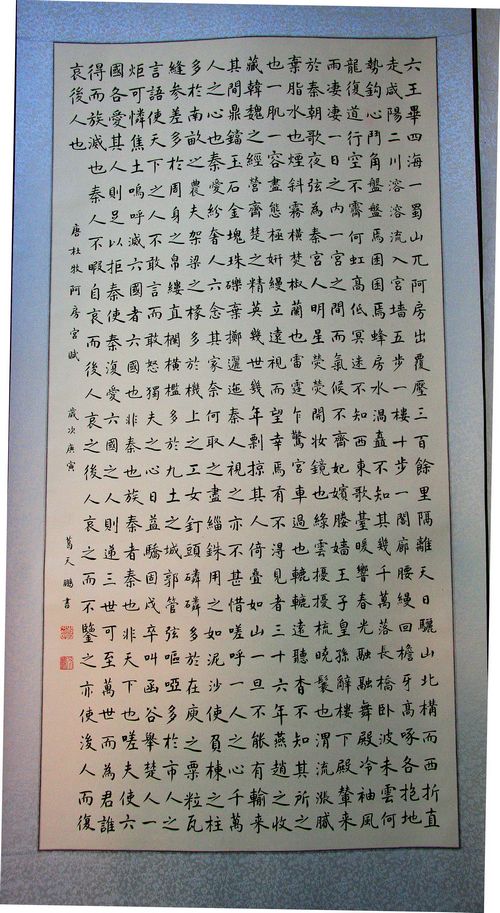 六王畢四海一蜀山兀阿房出覆壓三百餘里隔離天日驪山北構而西折直
走咸陽二川溶溶流入宮墻五步一樓十步一閣廊腰縵回檐牙高啄各抱地
勢鉤心鬥角盤盤焉囷囷焉蜂房水渦矗不知其幾千萬落長橋臥波未雲何
龍復道行空不霽何虹高低冥迷不知西東歌臺暖響春光融融舞殿冷袖風
雨淒淒一日之內一宮之間而氣候不齊妃嬪媵嬙王子皇孫辭樓下殿輦來
於秦朝歌夜弦為秦宮人明星熒熒開妝鏡也綠雲擾擾梳曉鬟也渭流漲膩
棄脂水也煙斜霧橫焚椒蘭也雷霆乍驚宮車過也轆轆遠聽杳不知其所之
也一肌一容盡態極妍縵立遠視而望幸焉有不得見者三十六年燕趙之收
藏韓魏之經營齊楚之精英幾世幾年剽掠其人倚疊如山一旦不能有輸來
其間鼎鐺玉石金塊珠礫棄擲邐迤秦人視之亦不甚惜嗟呼一人之心千萬
人之心也秦愛紛奢人六念其家奈何取之盡錙銖用之如泥沙使負棟之柱
多於南畝之農夫架梁之椽多於機上之工女釘頭磷磷多於在庾之粟粒瓦
縫參差多於周身之帛縷直欄橫檻多於九土之城郭管弦嘔啞多於市人之
言語使天下之人不敢言而敢怒獨夫之心日益驕固戍卒叫函谷舉楚人一
炬可憐焦土嗚呼滅六國者六國也非秦也族秦者秦也非天下也嗟夫使六
國各愛其人則足以拒秦使秦復愛六國之人則遞三世可至萬世而為君誰
得而族滅也秦人不暇自哀而後人哀之後人哀之而不鑒之亦使後人而復
哀後人也
唐杜牧阿房宮賦 歲次庚寅 葛天鵬書